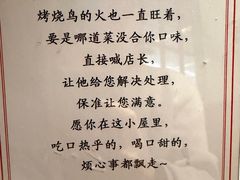 烤烧鸟的火也一直旺着，
要是哪道菜没合你口味，
直接喊店长，
让他给您解决处理，
保准让您满意。
愿你在这小屋里，
吃口热乎的，喝口甜的，
烦心事都飘走~